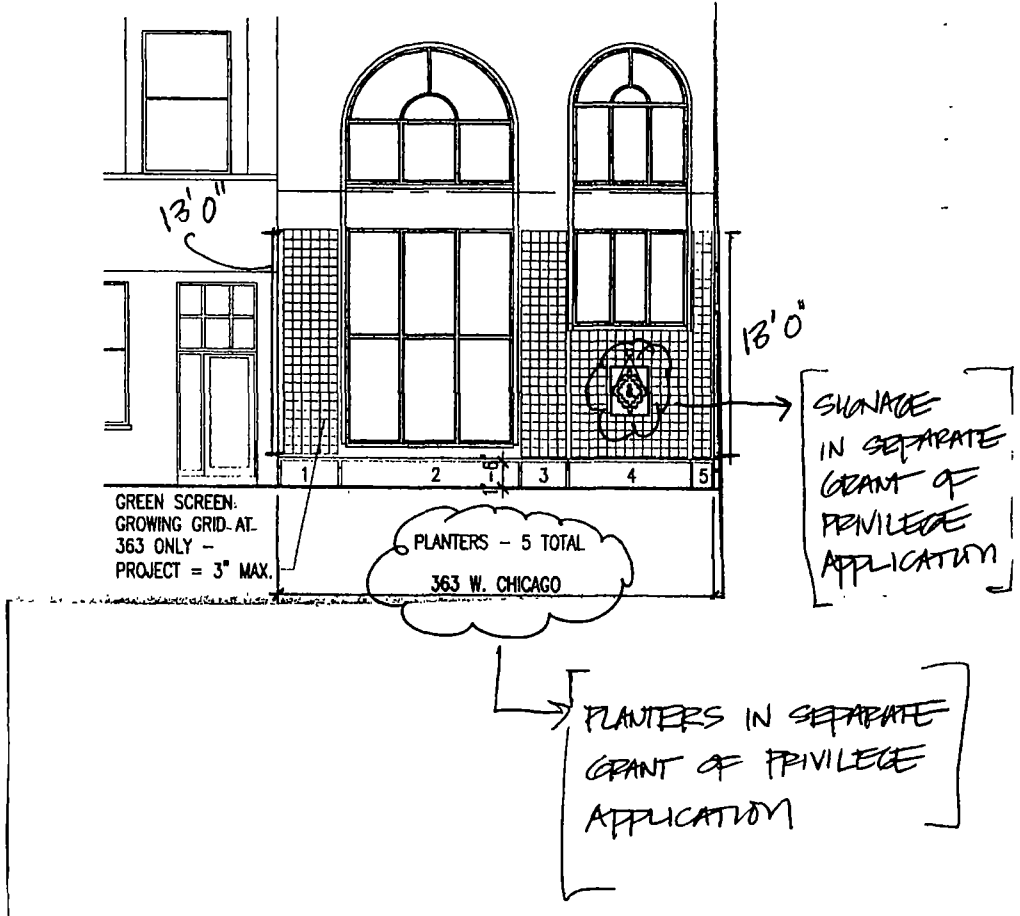 13'0"
13'0"
SIGNAGE
IN SEPARATE
GRANT OF
PRIVILEGE
APPLICATION
1 2 3 4 5
1'-6"
GREEN SCREEN:
GROWING GRID AT
363 ONLY -
PROJECT = 3" MAX.
PLANTERS - 5 TOTAL
363 W. CHICAGO
PLANTERS IN SEPARATE
GRANT OF PRIVILEGE
APPLICATION